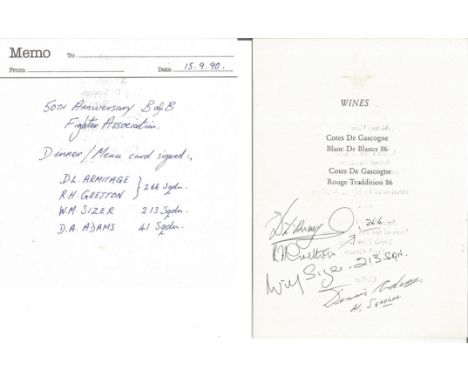 Memo To:
From: Date: 15.9.90.
50TH ANNIVERSARY B of B
Fighter Association.
Dinner/Menu card signed:,
D.L. ARMITAGE
R.H. GRETTON
266 Sqdn.
W.M. SIZER 213 Sqdn
D.A. ADAMS 41 Sqdn.
WINES
Cotes De Gascogne
Blanc De Blancs 86
Cotes De Gascogne
Rouge Traddition 86
266
213 SQN.
Dennis Adams
41, SQUADRON